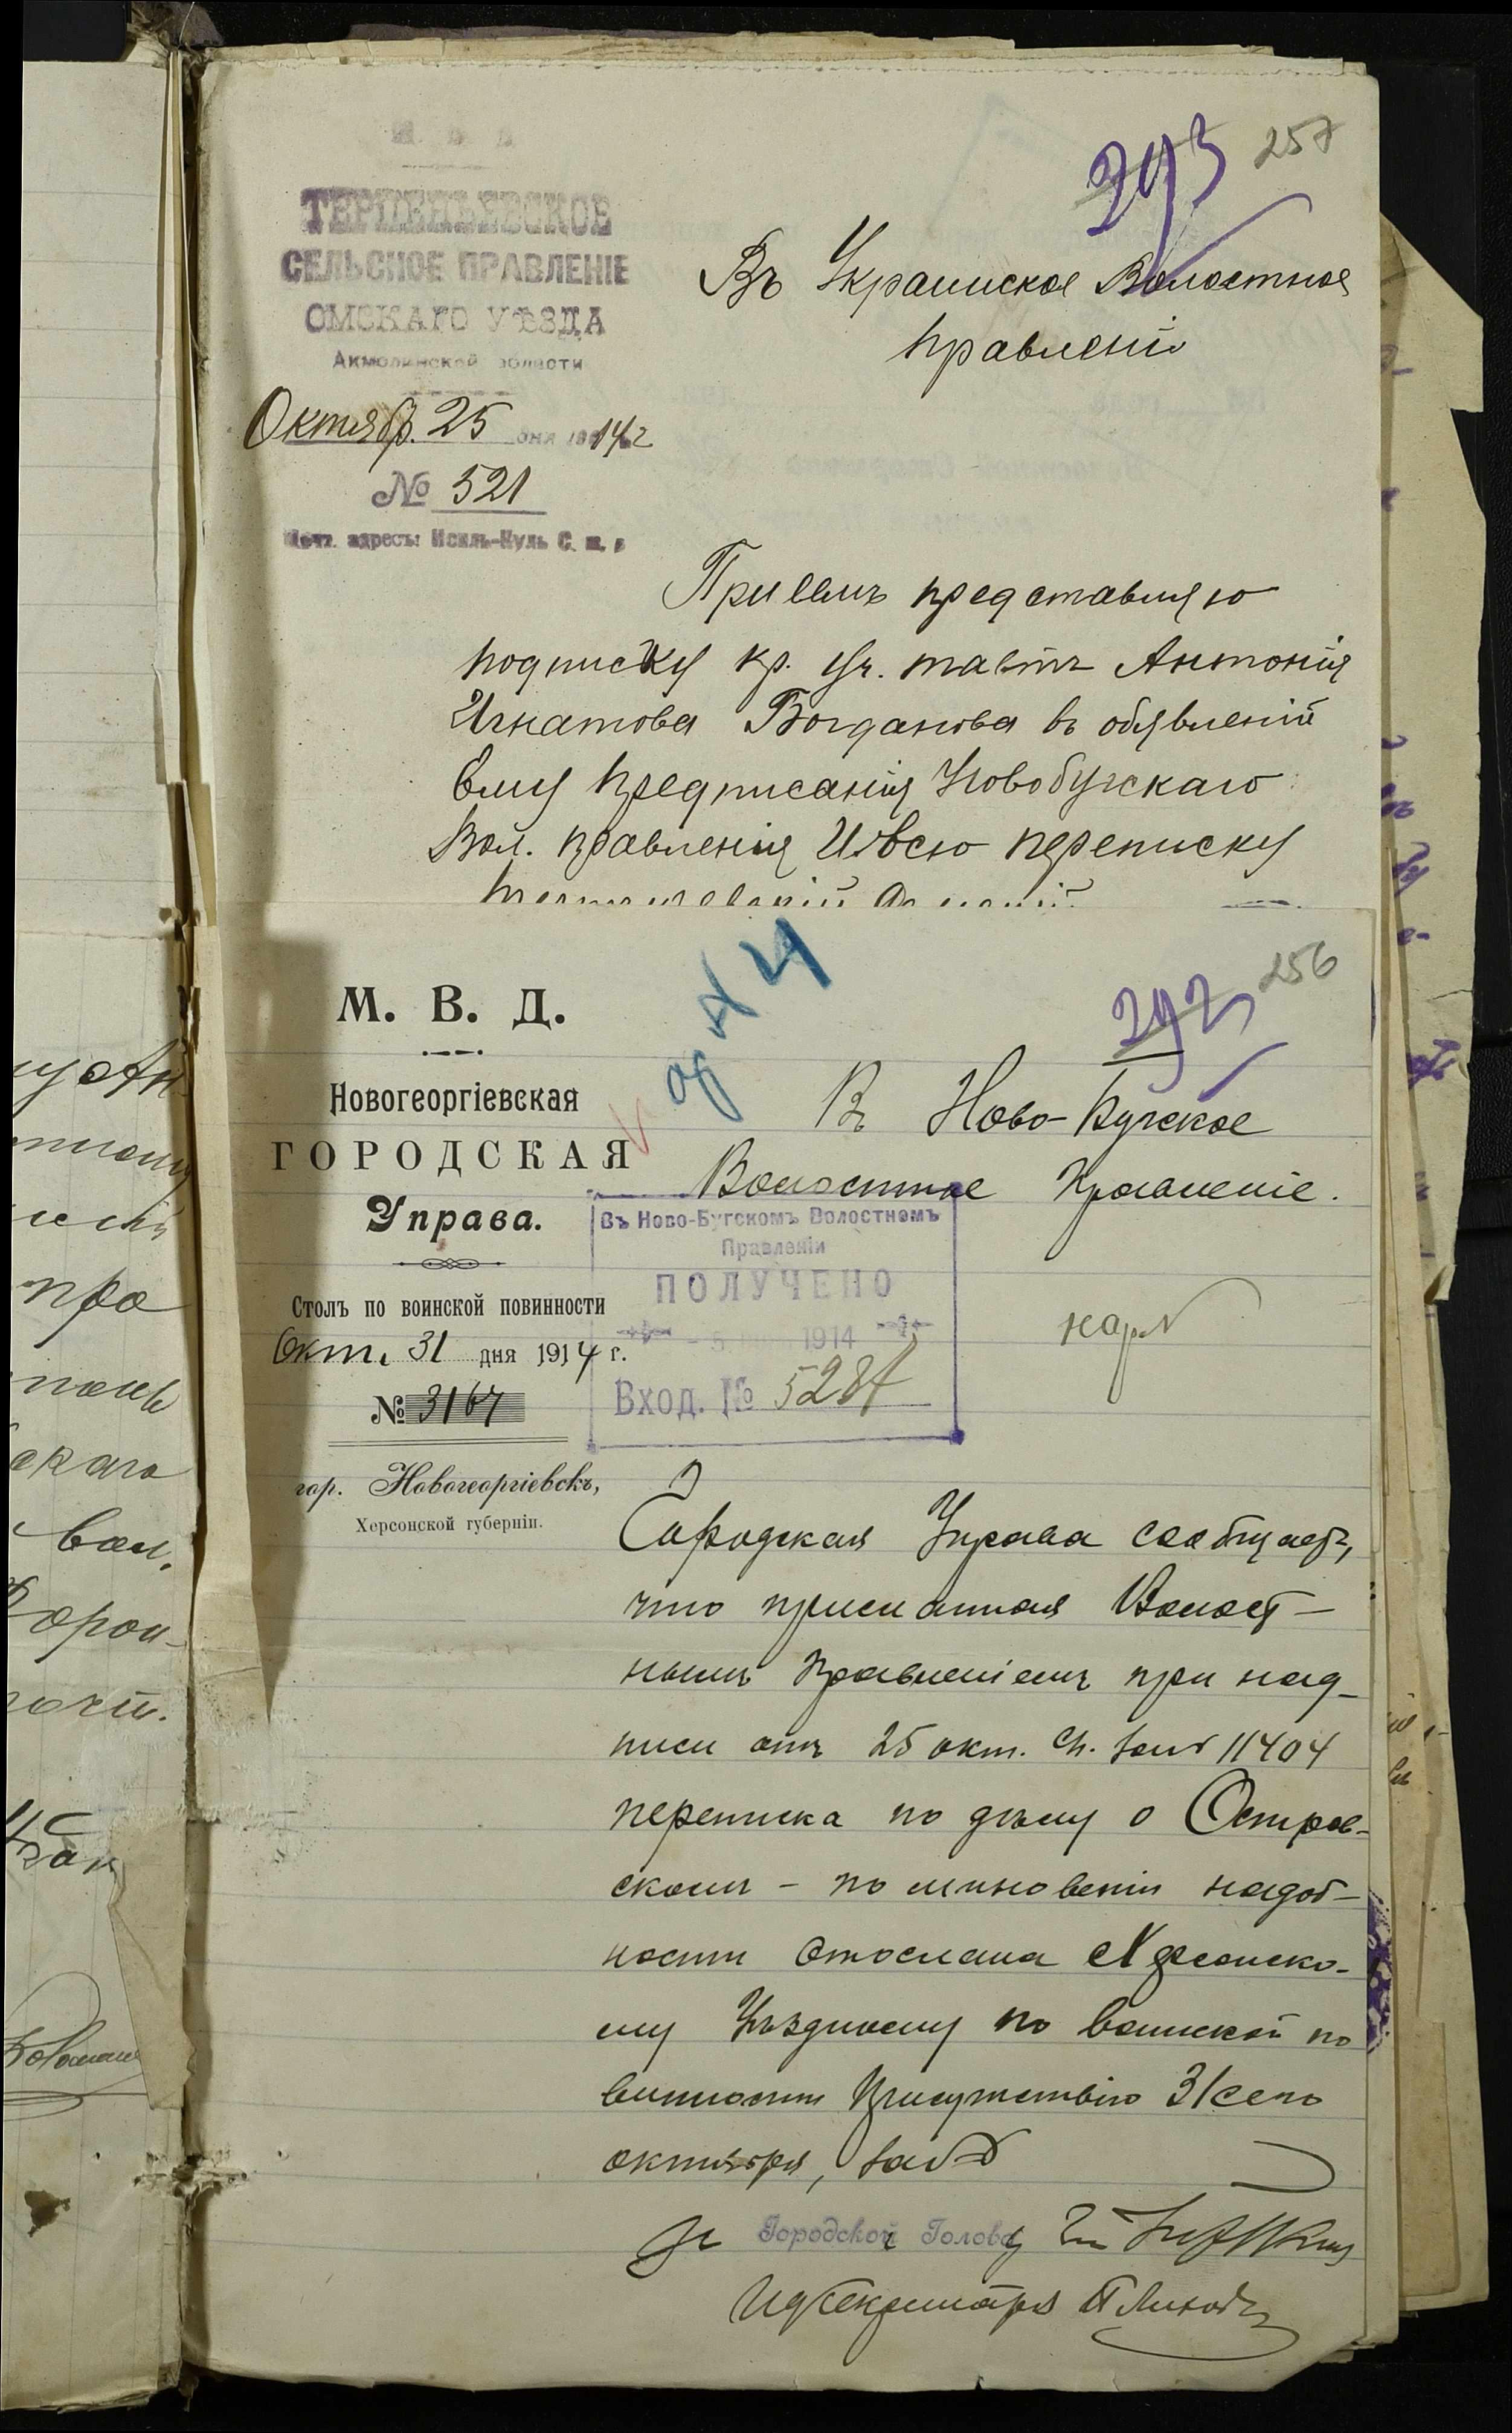 М. В. Д.
257
293
ТЕРЕНТЬЕВСКОЕ
СЕЛЬСКОЕ ПРАВЛЕНІЕ
ОМСКАГО УѢЗДА
Акмолинской области
Октябр. 25 дня 1914 г
№ 521
Почт. адресъ: Исиль-Куль С. ж. д
Въ Украинское Волостное
Правленіе
При семъ представляю
подписку кр. уч. Антонія
Игнатова Богданова въ обявленій
Ему предписанія Новобугскаго
Вол. правленія И всю переписку
256
292
М. В. Д.
Новогеоргіевская
ГОРОДСКАЯ
Управа.
Столъ по воинской повинности
Окт. 31 дня 1914 г.
№ 3167
гор. Новогеоргіевскъ,
Херсонской губерніи.
Въ Ново-Бугское
Волостное Правленіе.
Въ Ново-Бугскомъ Волостномъ
Правленіи
ПОЛУЧЕНО
5 1914
Вход. № 5287
Городская Управа сообщаетъ,
что присланная Волост-
нымъ Правленіемъ при над-
писи отъ 25 окт. с.г. за № 11404
переписка по дѣлу о Остров-
скомъ - по минованіи надоб-
ности отослана Херсонско-
му Уѣздному по воинской по
винности Присутствію 31 сего
октября, за №
За Городской Голова
ИД Секретаря